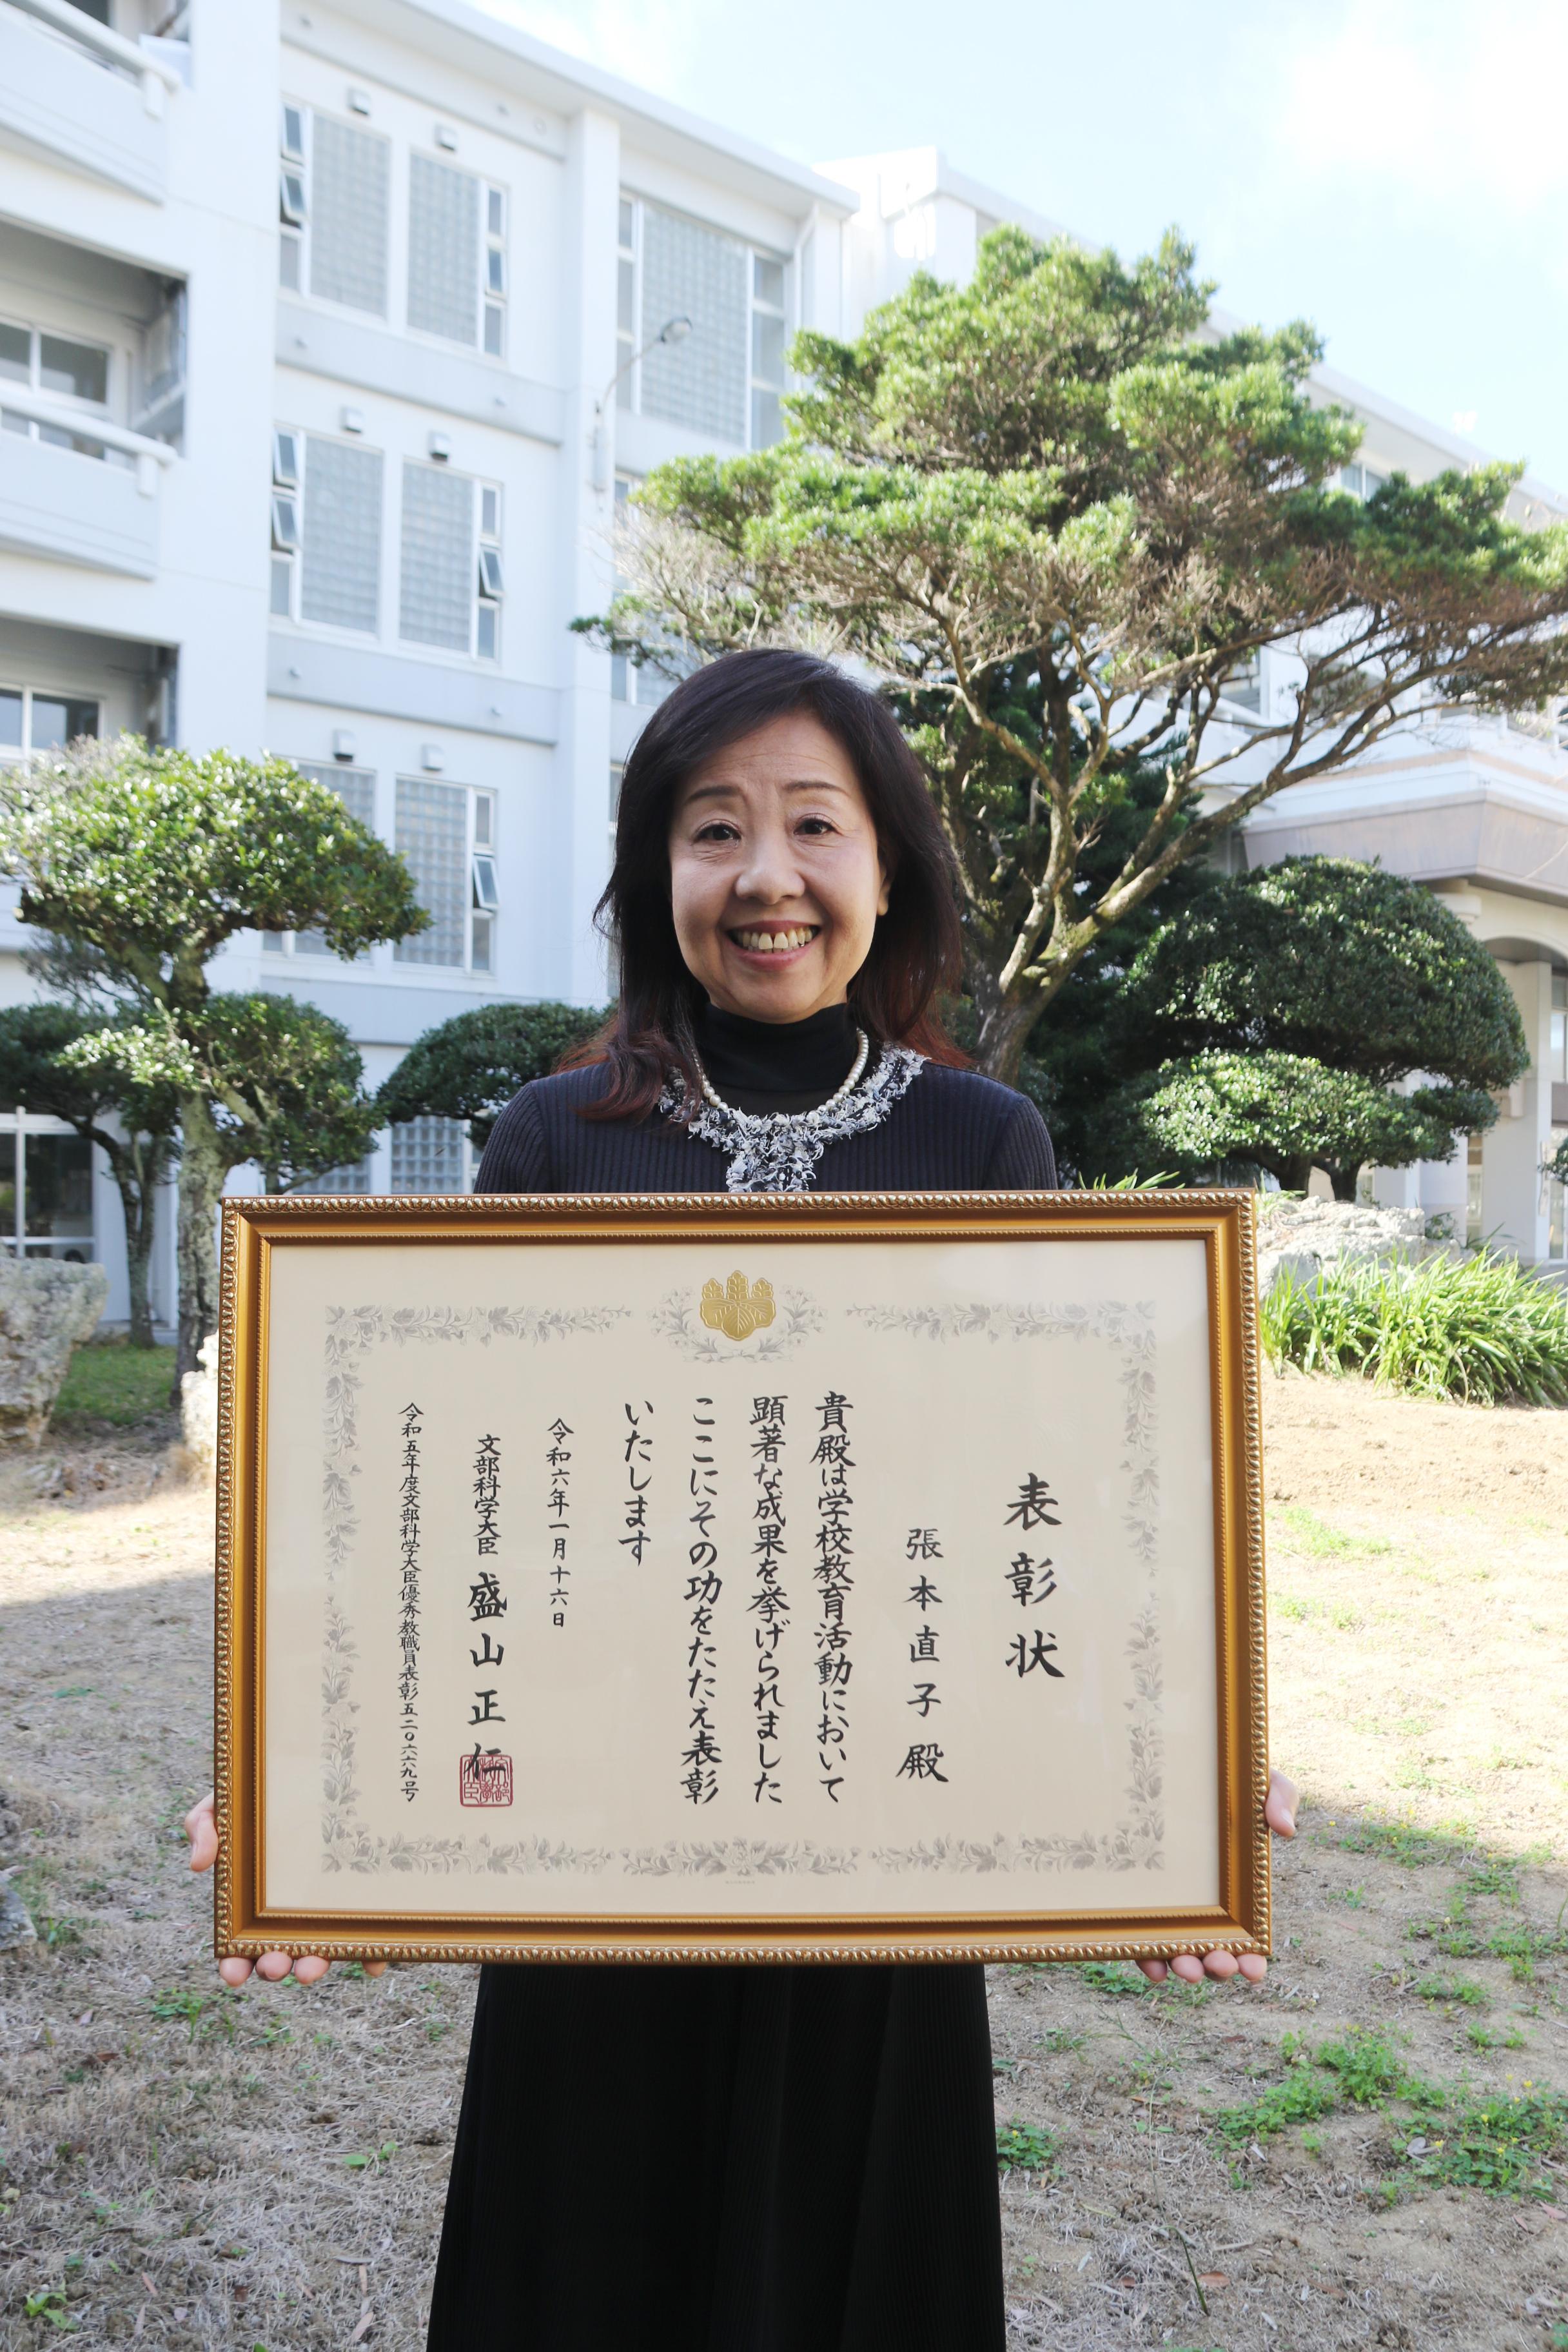 表彰状
張本直子殿
貴殿は学校教育活動において
顕著な成果を挙げられました
ここにその功をたたえ表彰
いたします
令和六年一月十六日
文部科学大臣 盛山正仁
令和五年度文部科学大臣優秀教職員表彰五二〇六六九号